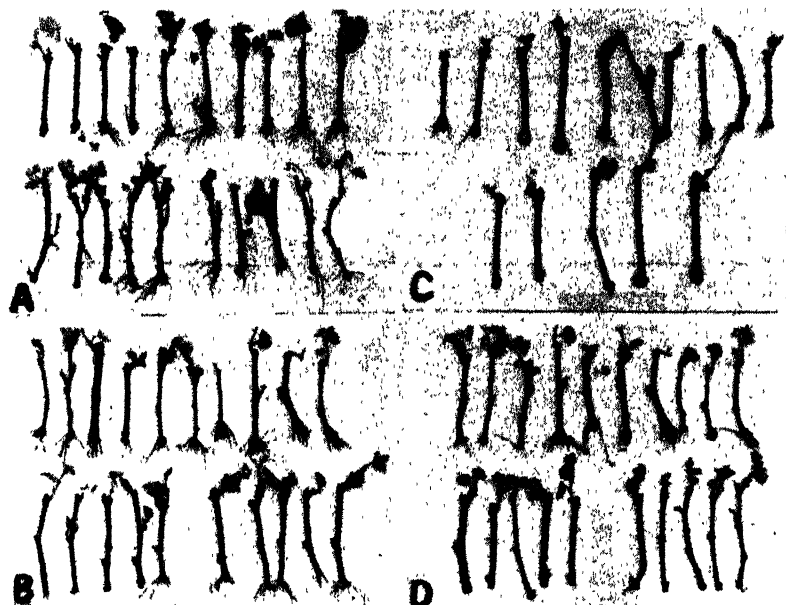 A
C
B
D